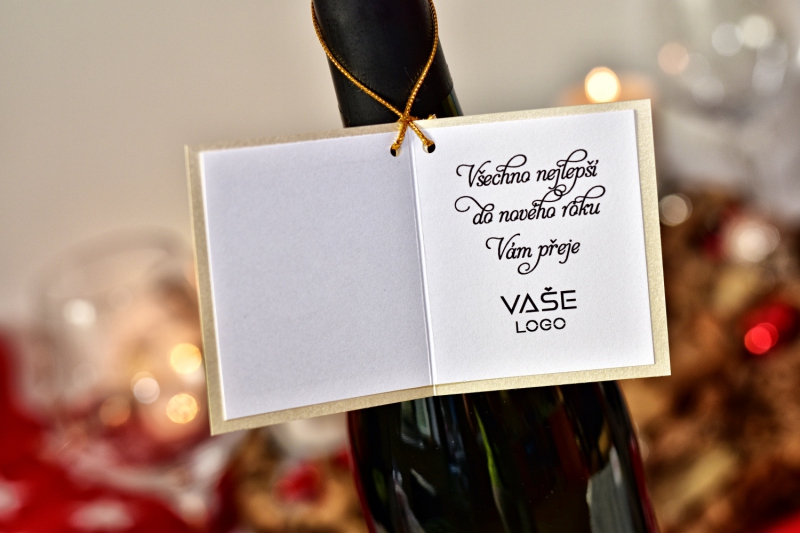 Všechno nejlepší
do nového roku
Vám přeje
VAŠE
LOGO